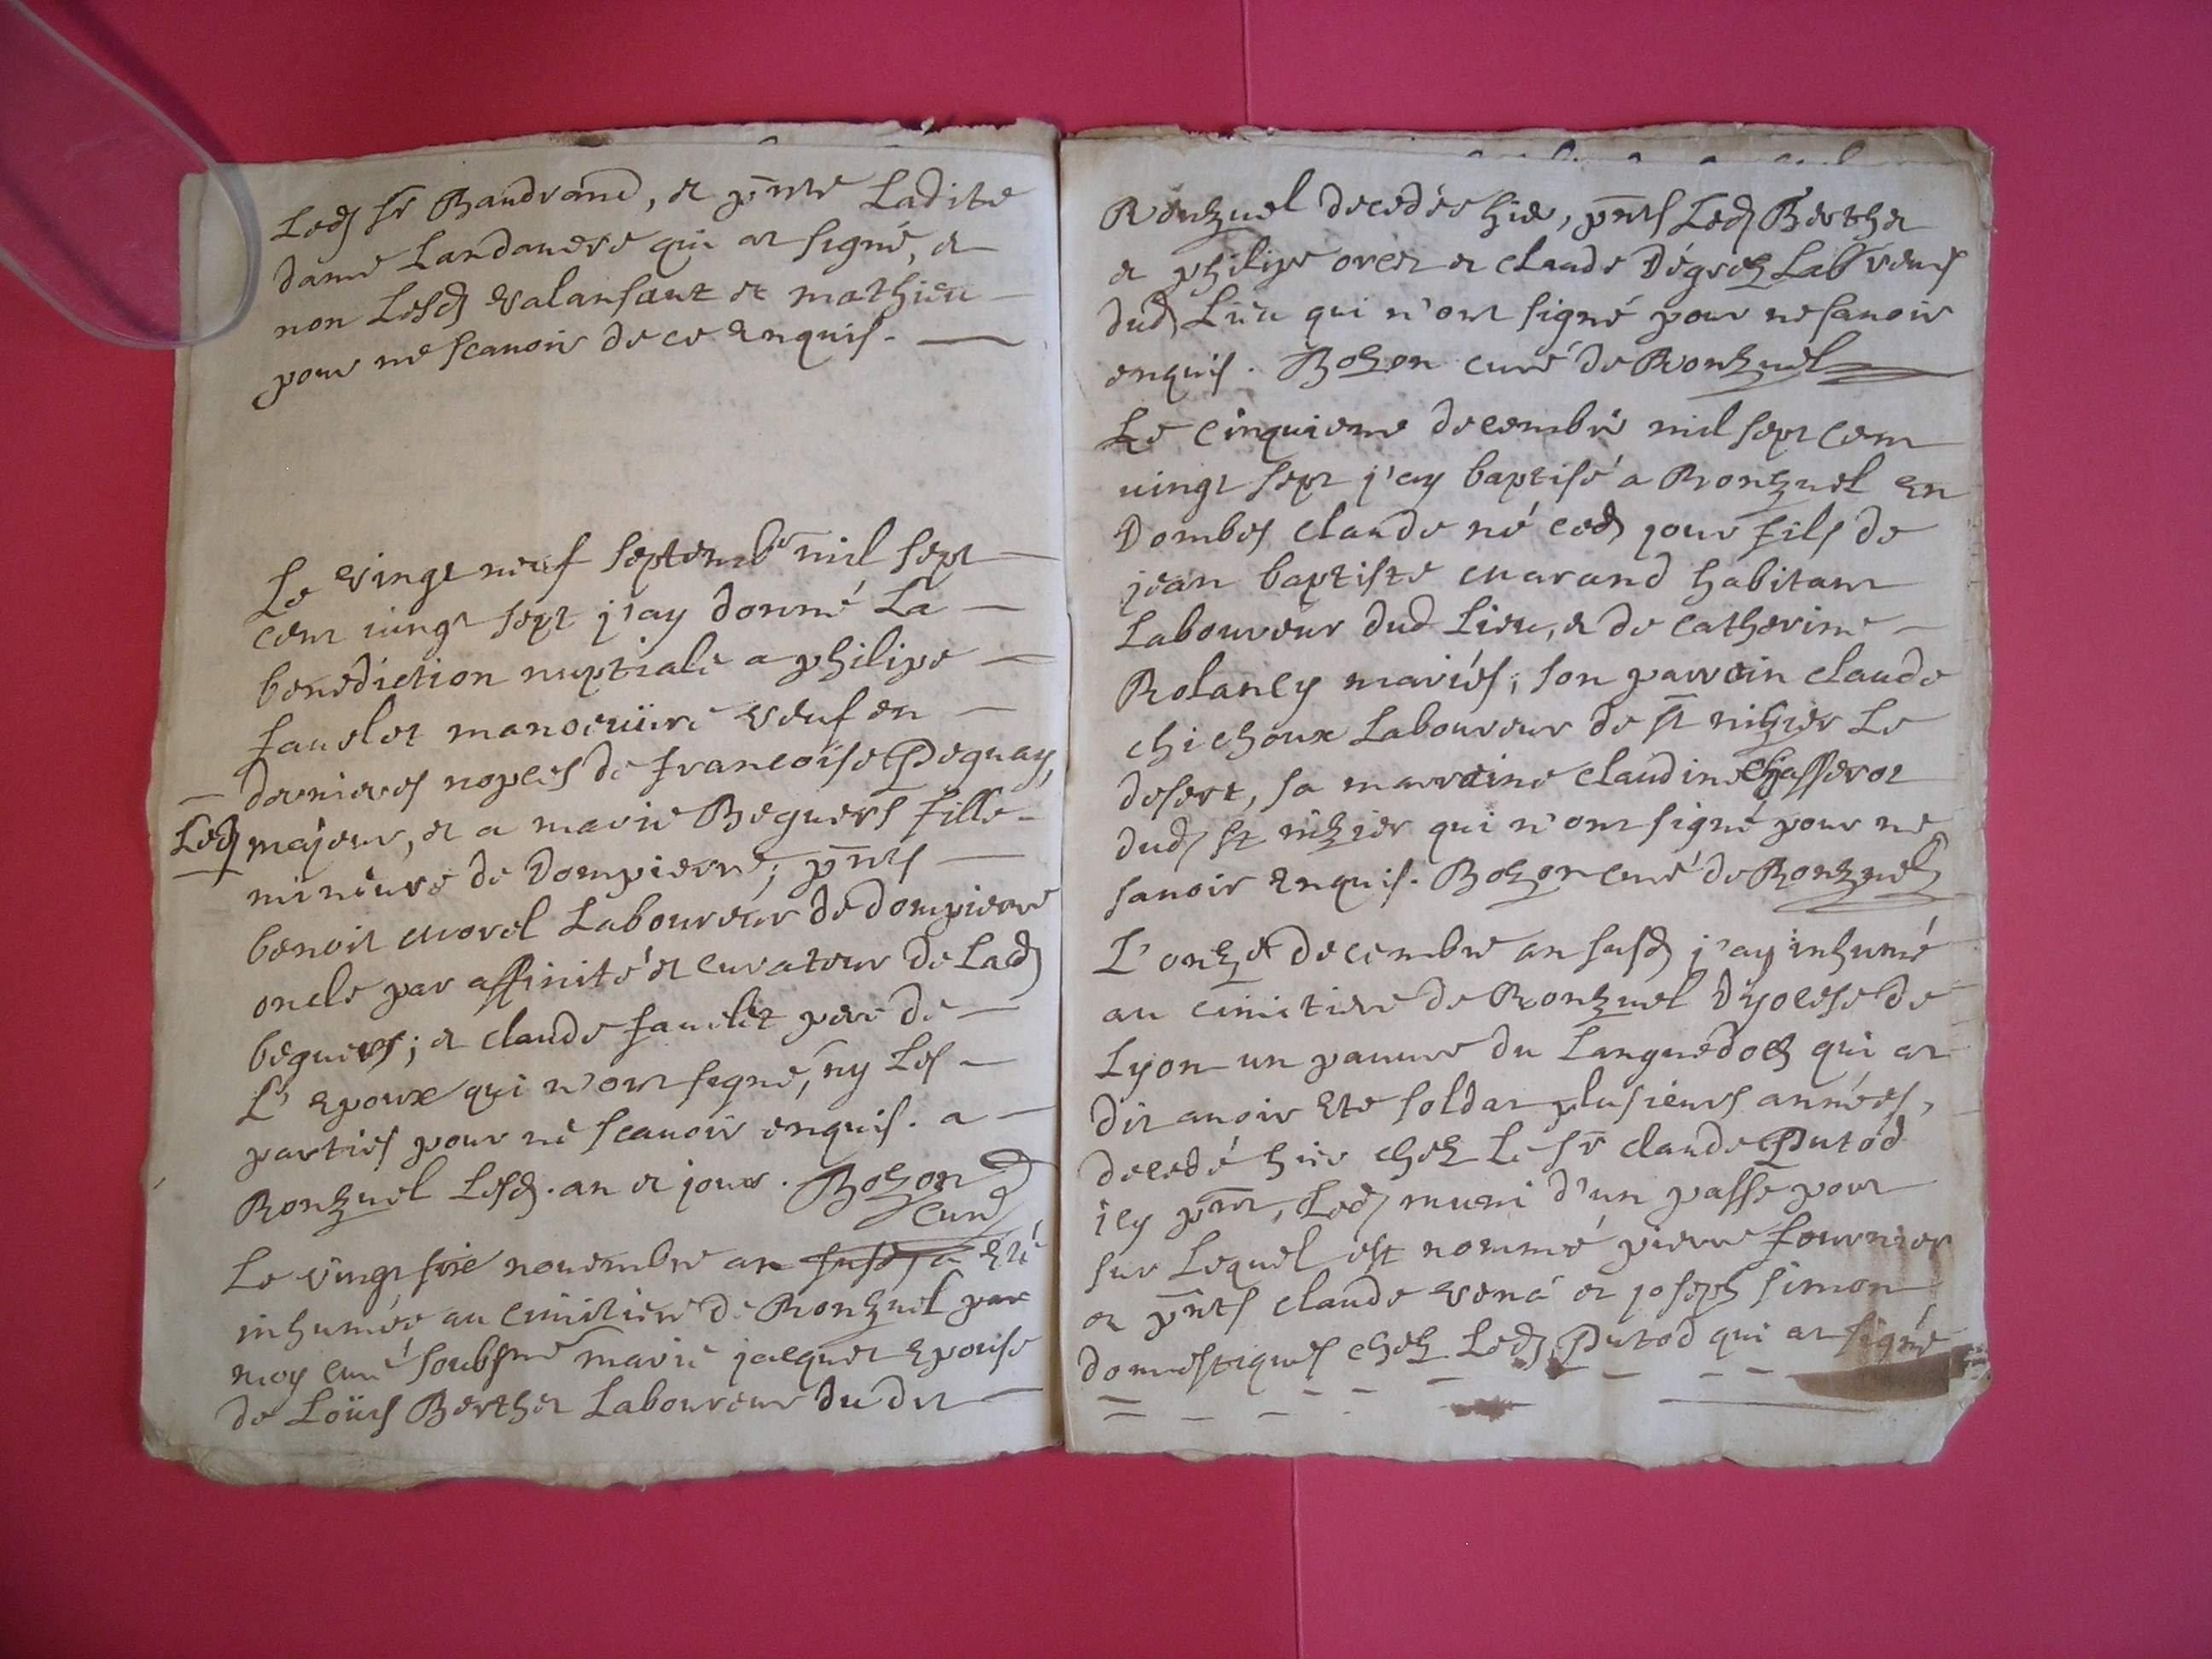 Led sr Baudrand, et pnte Ladite
dame Landanere qui at signé, et
non Lesd valansaut et mathieu
pour ne scauoir de ce enquis.
Le vingt neuf septembe mil sept
cent uingt sept j'ay donné La
benediction nuptiale a philipe
fauelet manoeuure veuf en
dernieres nopces de francoise Peguay,
Led majeur, et a marie Beguers fille
mineure de Dompierre; pnts
benoit morel Laboureur de dompierre
oncle par affinité et curateur de Lad
beguers; et claude fauelet pere de
L'epoux qui n'ont signé, ny Les
parties pour ne scauoir enquis. a
Ronzuel Lesd. an et jour. Bozon
curé
Le vingt six nouembre an susd a eté
inhumée au cimitiere de Ronzuel par
moy curé soubsné marie jacquet epouse
de Loüis Berthet Laboureur du dit
Ronzuel decedée hier, pnts Led Berthet
et philipe orcet et claude Dégrez Labreurs
dud Lieu qui n'ont signé pour ne sauoir
enquis. Bozon curé de Ronzuel
Le cinquieme decembre mil sept cent
uingt sept j'ay baptisé a Ronzuel en
Dombes claude né ced jour fils de
jean baptiste marand habitant
Laboureur dud Lieu, et de catherine
Rolancy mariés; son parrein claude
chichoux Laboureur de st nizier Le
desert, sa marreine claudine Chasserot
dud st nizier qui n'ont signé pour ne
sauoir enquis. Bozon curé de Ronzuel
L'onze decembre an susd j'ay inhumé
au cimitiere de Ronzuel Dyocese de
Lyon un pauure du Languedoc qui at
dit auoir ete soldat plusieurs années,
decedé hier chez Le sr claude Putod
icy pnt, Led muni d'un passe pour
sur Lequel est nommé pierre fournier
et pnts claude vena et joseph simon
domestiques chez Led Putod qui at signé